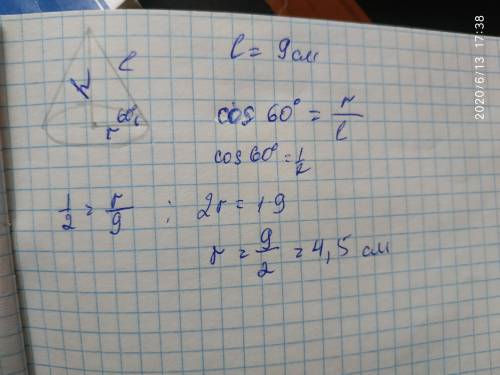 l = 9 см
h l
60°
r
cos 60° = r/l
cos 60° = 1/2
1/2 = r/9 ; 2r = 1·9
r = 9/2 = 4,5 см
2020/6/13 17:38